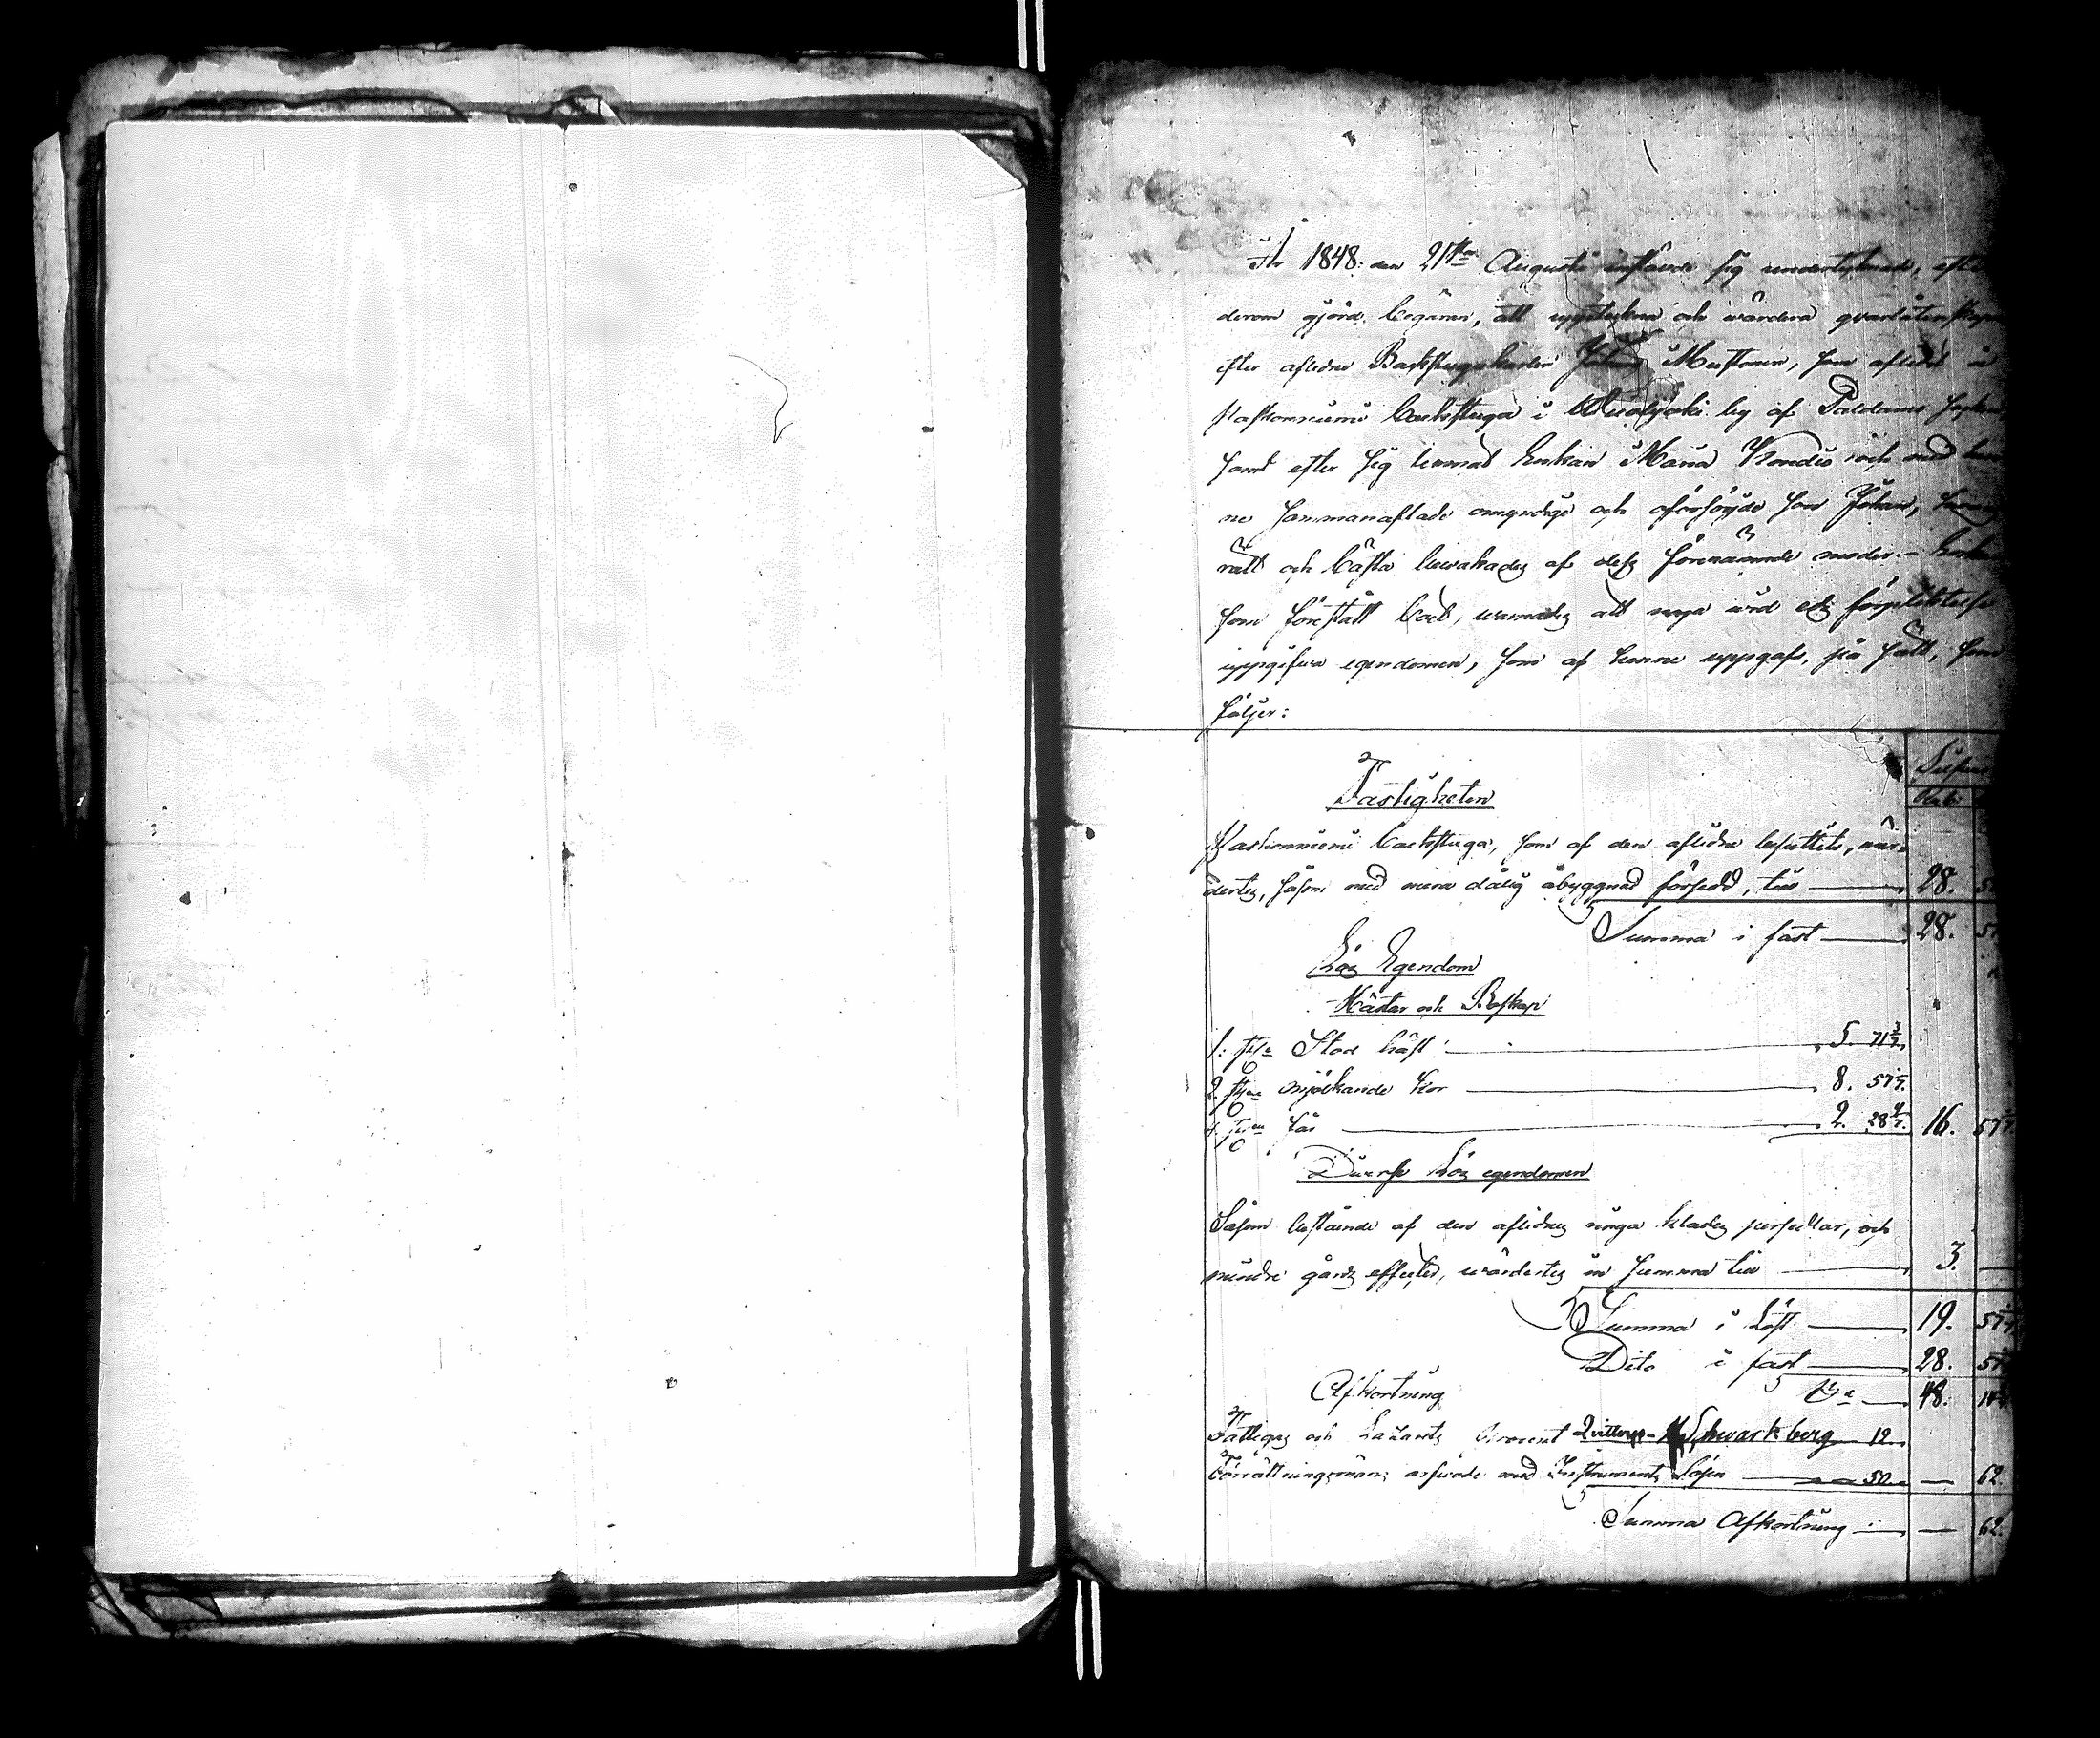 År 1848: den 21sta Augusti infann sig underteknad, efter
derom gjord begäran, att uppteckna och wärdera qvarlåtenskapen
efter aflidne Backstugukarlen Johan Mustonen, som aflidit å
backstuga i by af Paldamo Sokn
samt efter sig lemnat Enkan Maria och med hen
ne sammanaflade omyndige och oförsörgde son Johan, hwars
rätt och bästa bewakades af dess förenämnde moder.— Enkan
som förestått boet, warnades att noga under eds förpliktelse
uppgifwa egendomen, som af henne uppgafs, på sätt, som
följer:
Silfver
Rub:
Fastigheten
backstuga, som af den aflidne besuttits, wär-
dertes, såsom med mera dålig åbyggnad försedd, till — 28. 57
Summa i fast — 28. 57
Lös Egendom
Hästar och Boskap
1: st Stod häst — 5. 71 3/7.
2. st mjölkande kor — 8. 57 1/7.
4. st får — 2. 28 4/7. 16. 57 1/7
Diverse Lös egendomen
Såsom bestående af den aflidnes ringa klädes persedlar, och
mindre gårds effecter, wärdertes in summa till — 3. —
Summa i Löst — 19. 57 1/7
Dito i fast — 28. 57
Sa — 48. 14
Afkortning
Fattigas och Lazarets Procent Qvitteras Schwartzberg 12.
Förrättningsmäns arfwode med Instruments Lösen — 50. — 62.
Summa Afkortning — — 62.